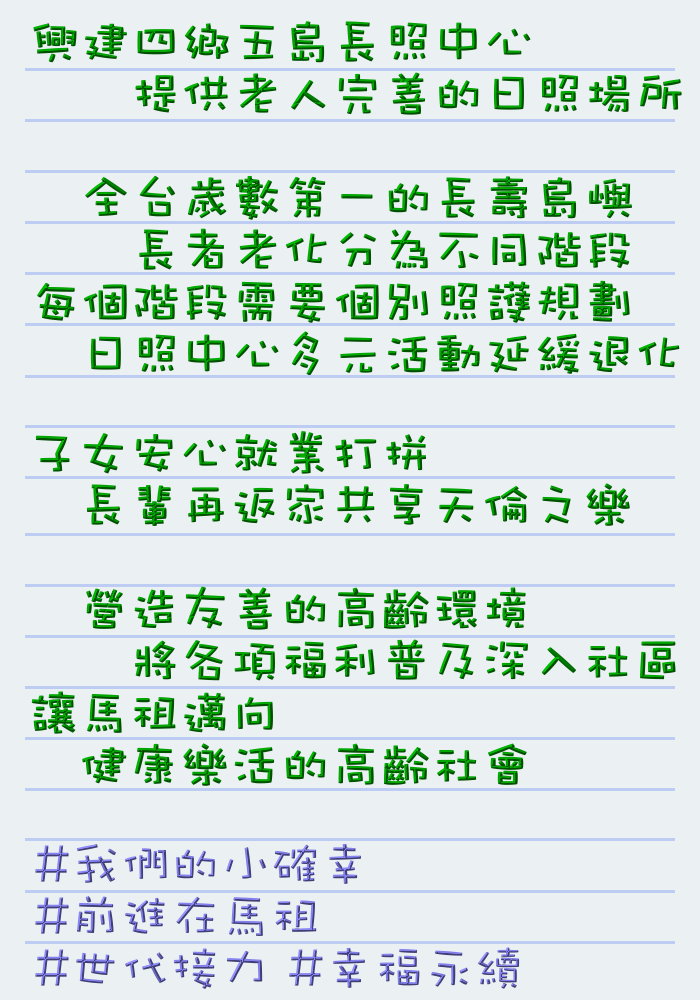 興建四鄉五島長照中心
提供老人完善的日照場所
全台歲數第一的長壽島嶼
長者老化分為不同階段
每個階段需要個別照護規劃
日照中心多元活動延緩退化
子女安心就業打拼
長輩再返家共享天倫之樂
營造友善的高齡環境
將各項福利普及深入社區
讓馬祖邁向
健康樂活的高齡社會
#我們的小確幸
#前進在馬祖
#世代接力 #幸福永續